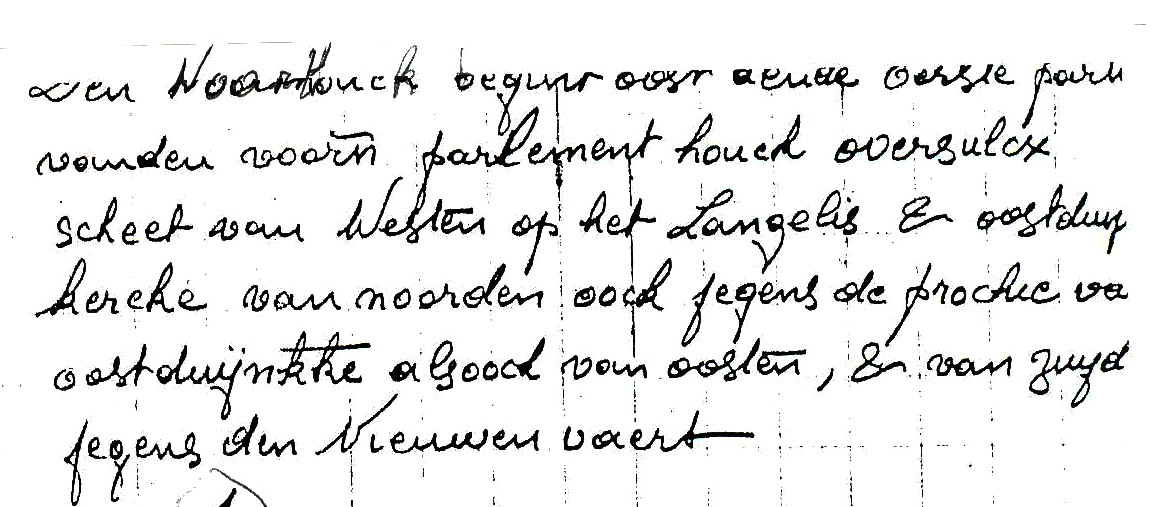 den Noorthouck begint oost aende oostsie parn
vanden voorn parlement houck oversulcx
scheet van Westen op het Langelis & oostduy
kercke van noorden oock jegens de prochie va
oostduijnkke alsoock van oosten, & van zuyd
jegens den Nieuwen vaert